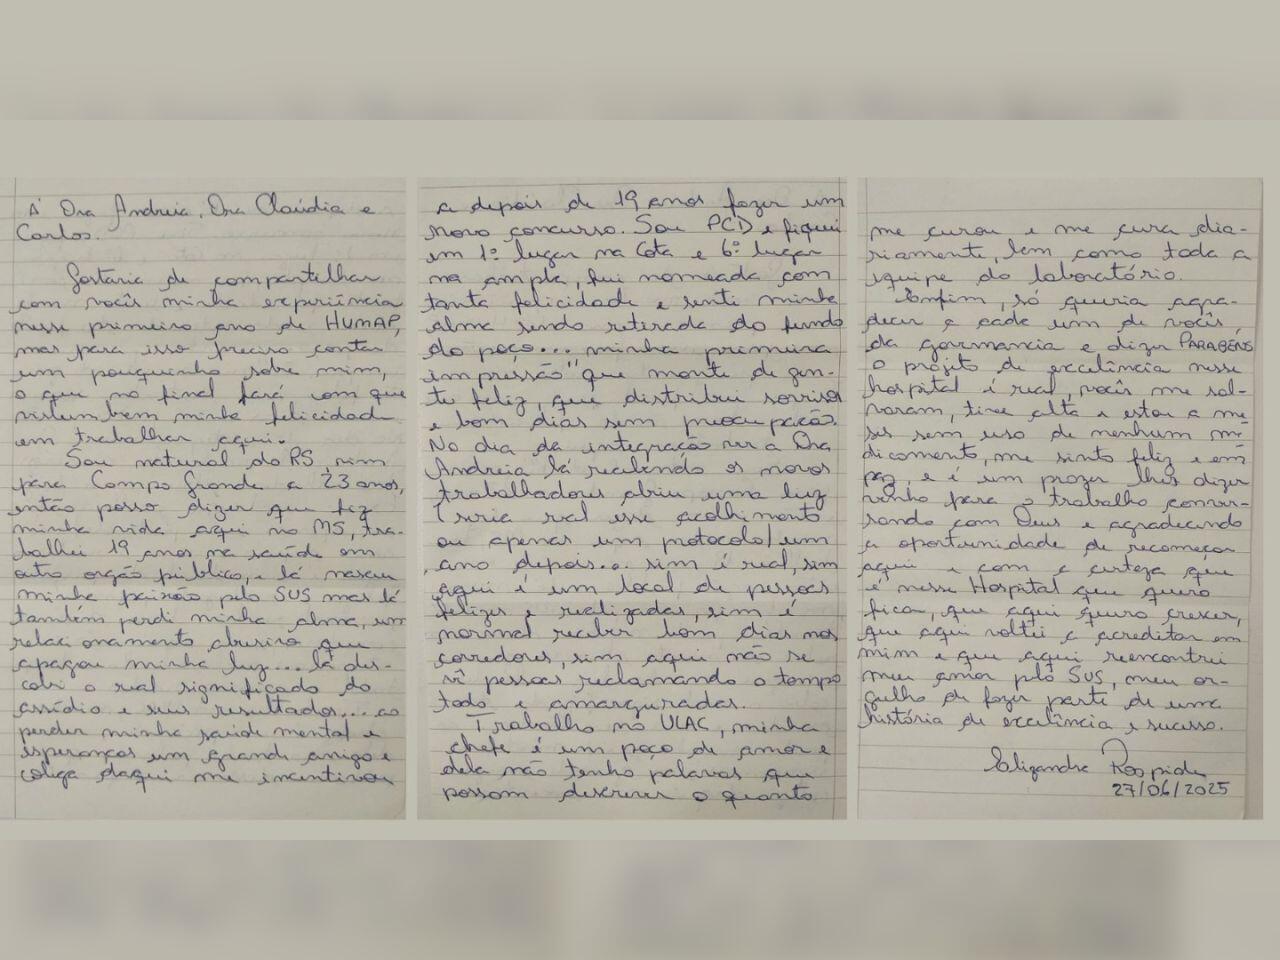 À Dra Andreia, Dra Claúdia e
Carlos.
Gostaria de compartilhar
com vocês minha experiência
nesse primeiro ano de HUMAP,
mas para isso preciso contar
um pouquinho sobre mim,
o que no final fará com que
vislumbrem minha felicidade
em trabalhar aqui.
Sou natural do RS, vim
para Campo Grande a 23 anos,
então posso dizer que fiz
minha vida aqui no MS, tra-
balhei 19 anos na saúde em
outro orgão público, e lá nasceu
minha paixão pelo SUS mas lá
também perdi minha alma, um
relacionamento abusivo que
apagou minha luz... lá des-
cobri o real significado do
assédio e seus resultados... ao
perder minha saúde mental e
esperanças um grande amigo e
colega daqui me incentivou
a depois de 19 anos fazer um
novo concurso. Sou PCD e fiquei
em 1º lugar na Cota e 6º lugar
na ampla, fui nomeada com
tanta felicidade e senti minha
alma sendo retirada do fundo
do poço... minha primeira
impressão "que monte de gen-
te feliz, que distribui sorrisos
e bom dias sem preocupação.
No dia da integração ver a Dra
Andreia lá recebendo os novos
trabalhadores abriu uma luz
(seria real esse acolhimento
ou apenas um protocolo) um
ano depois... sim é real, sim
aqui é um local de pessoas
felizes e realizadas, sim é
normal receber bom dias nos
corredores, sim aqui não se
vê pessoas reclamando o tempo
todo e amarguradas.
Trabalho na ULAC, minha
chefe é um poço de amor e
dela não tenho palavras que
possam descrever o quanto
me curou e me cura dia-
riamente, bem como toda a
equipe do laboratório.
Enfim, só queria agra-
decer a cada um de vocês,
da governancia e dizer PARABÉNS
o projeto de excelência nesse
hospital é real, vocês me sal-
varam, tive alta e estou a me-
ses sem uso de nenhum me-
dicamento, me sinto feliz e em
paz, e é um prazer lhes dizer
venho para o trabalho conver-
sando com Deus e agradecendo
a oportunidade de recomeçar
aqui e com a certeza que
é nesse Hospital que quero
ficar, que aqui quero crescer,
que aqui voltei a acreditar em
mim e que aqui reencontrei
meu amor pelo SUS, meu or-
gulho de fazer parte de uma
história de excelência e sucesso.
27/06/2025